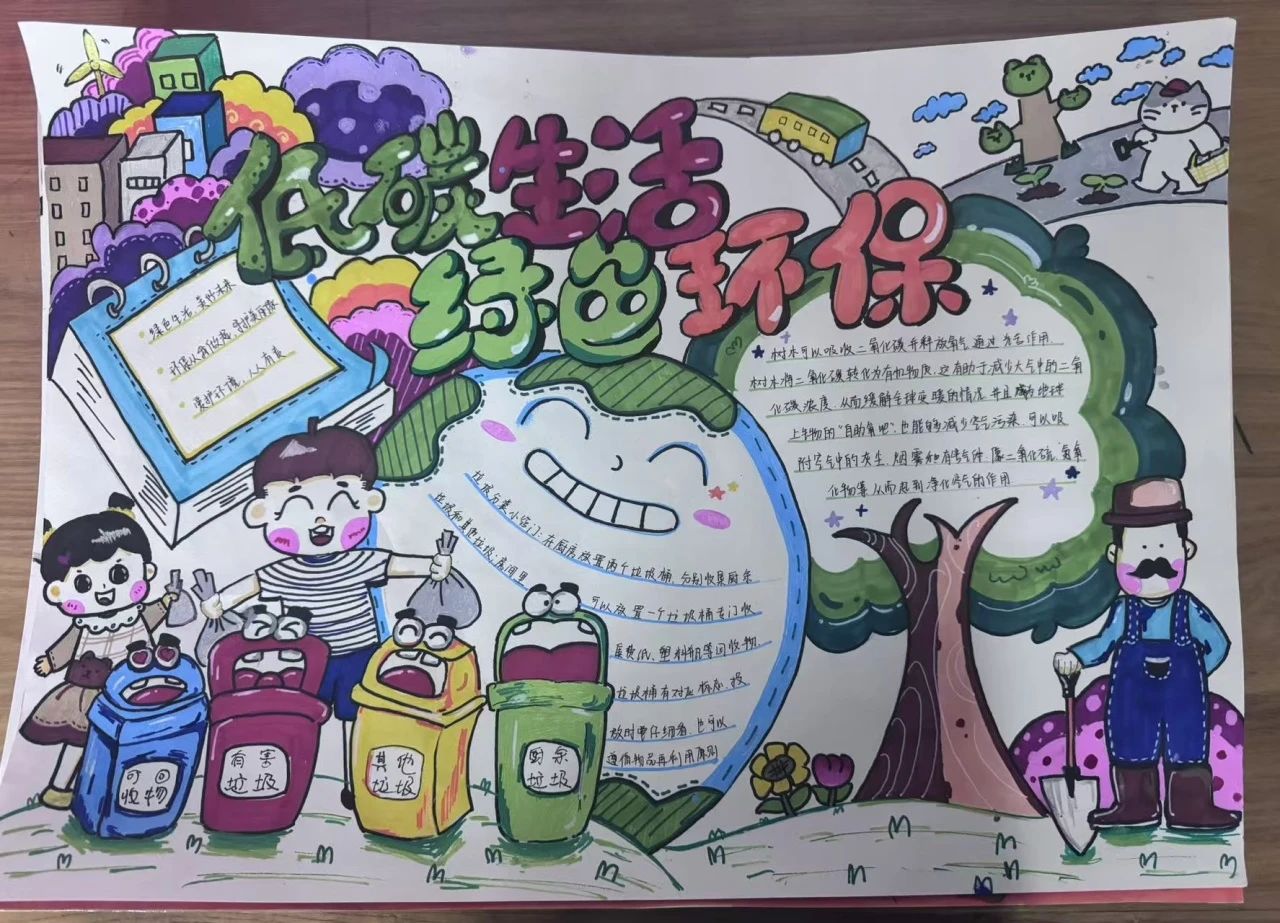 低碳生活
绿色环保
绿色生活，美好未来
环保从我做起，守护美丽家园
爱护环境，人人有责
树木可以吸收二氧化碳并释放氧气通过光合作用
树木将二氧化碳转化为有机物质，这有助于减少大气中的二氧
化碳浓度，从而缓解全球变暖的情况并且成为地球
上生物的“自助氧吧”也能够减少空气污染，可以吸
附空气中的灰尘、烟雾和有害气体，像二氧化硫、氮氧
化物等从而起到净化空气的作用
垃圾分类小窍门：在厨房放置两个垃圾桶，分别收集厨余
垃圾和其他垃圾；房间里
可以放置一个垃圾桶专门收
废纸、塑料瓶等回收物
垃圾桶有对应标志，投
放时要仔细看，也可以
遵循物品再利用原则
可回
收物
有害
垃圾
其他
垃圾
厨余
垃圾